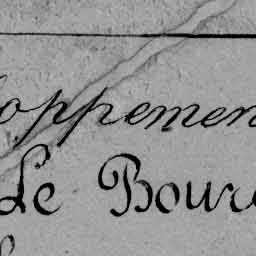 oppemen
Le Bour